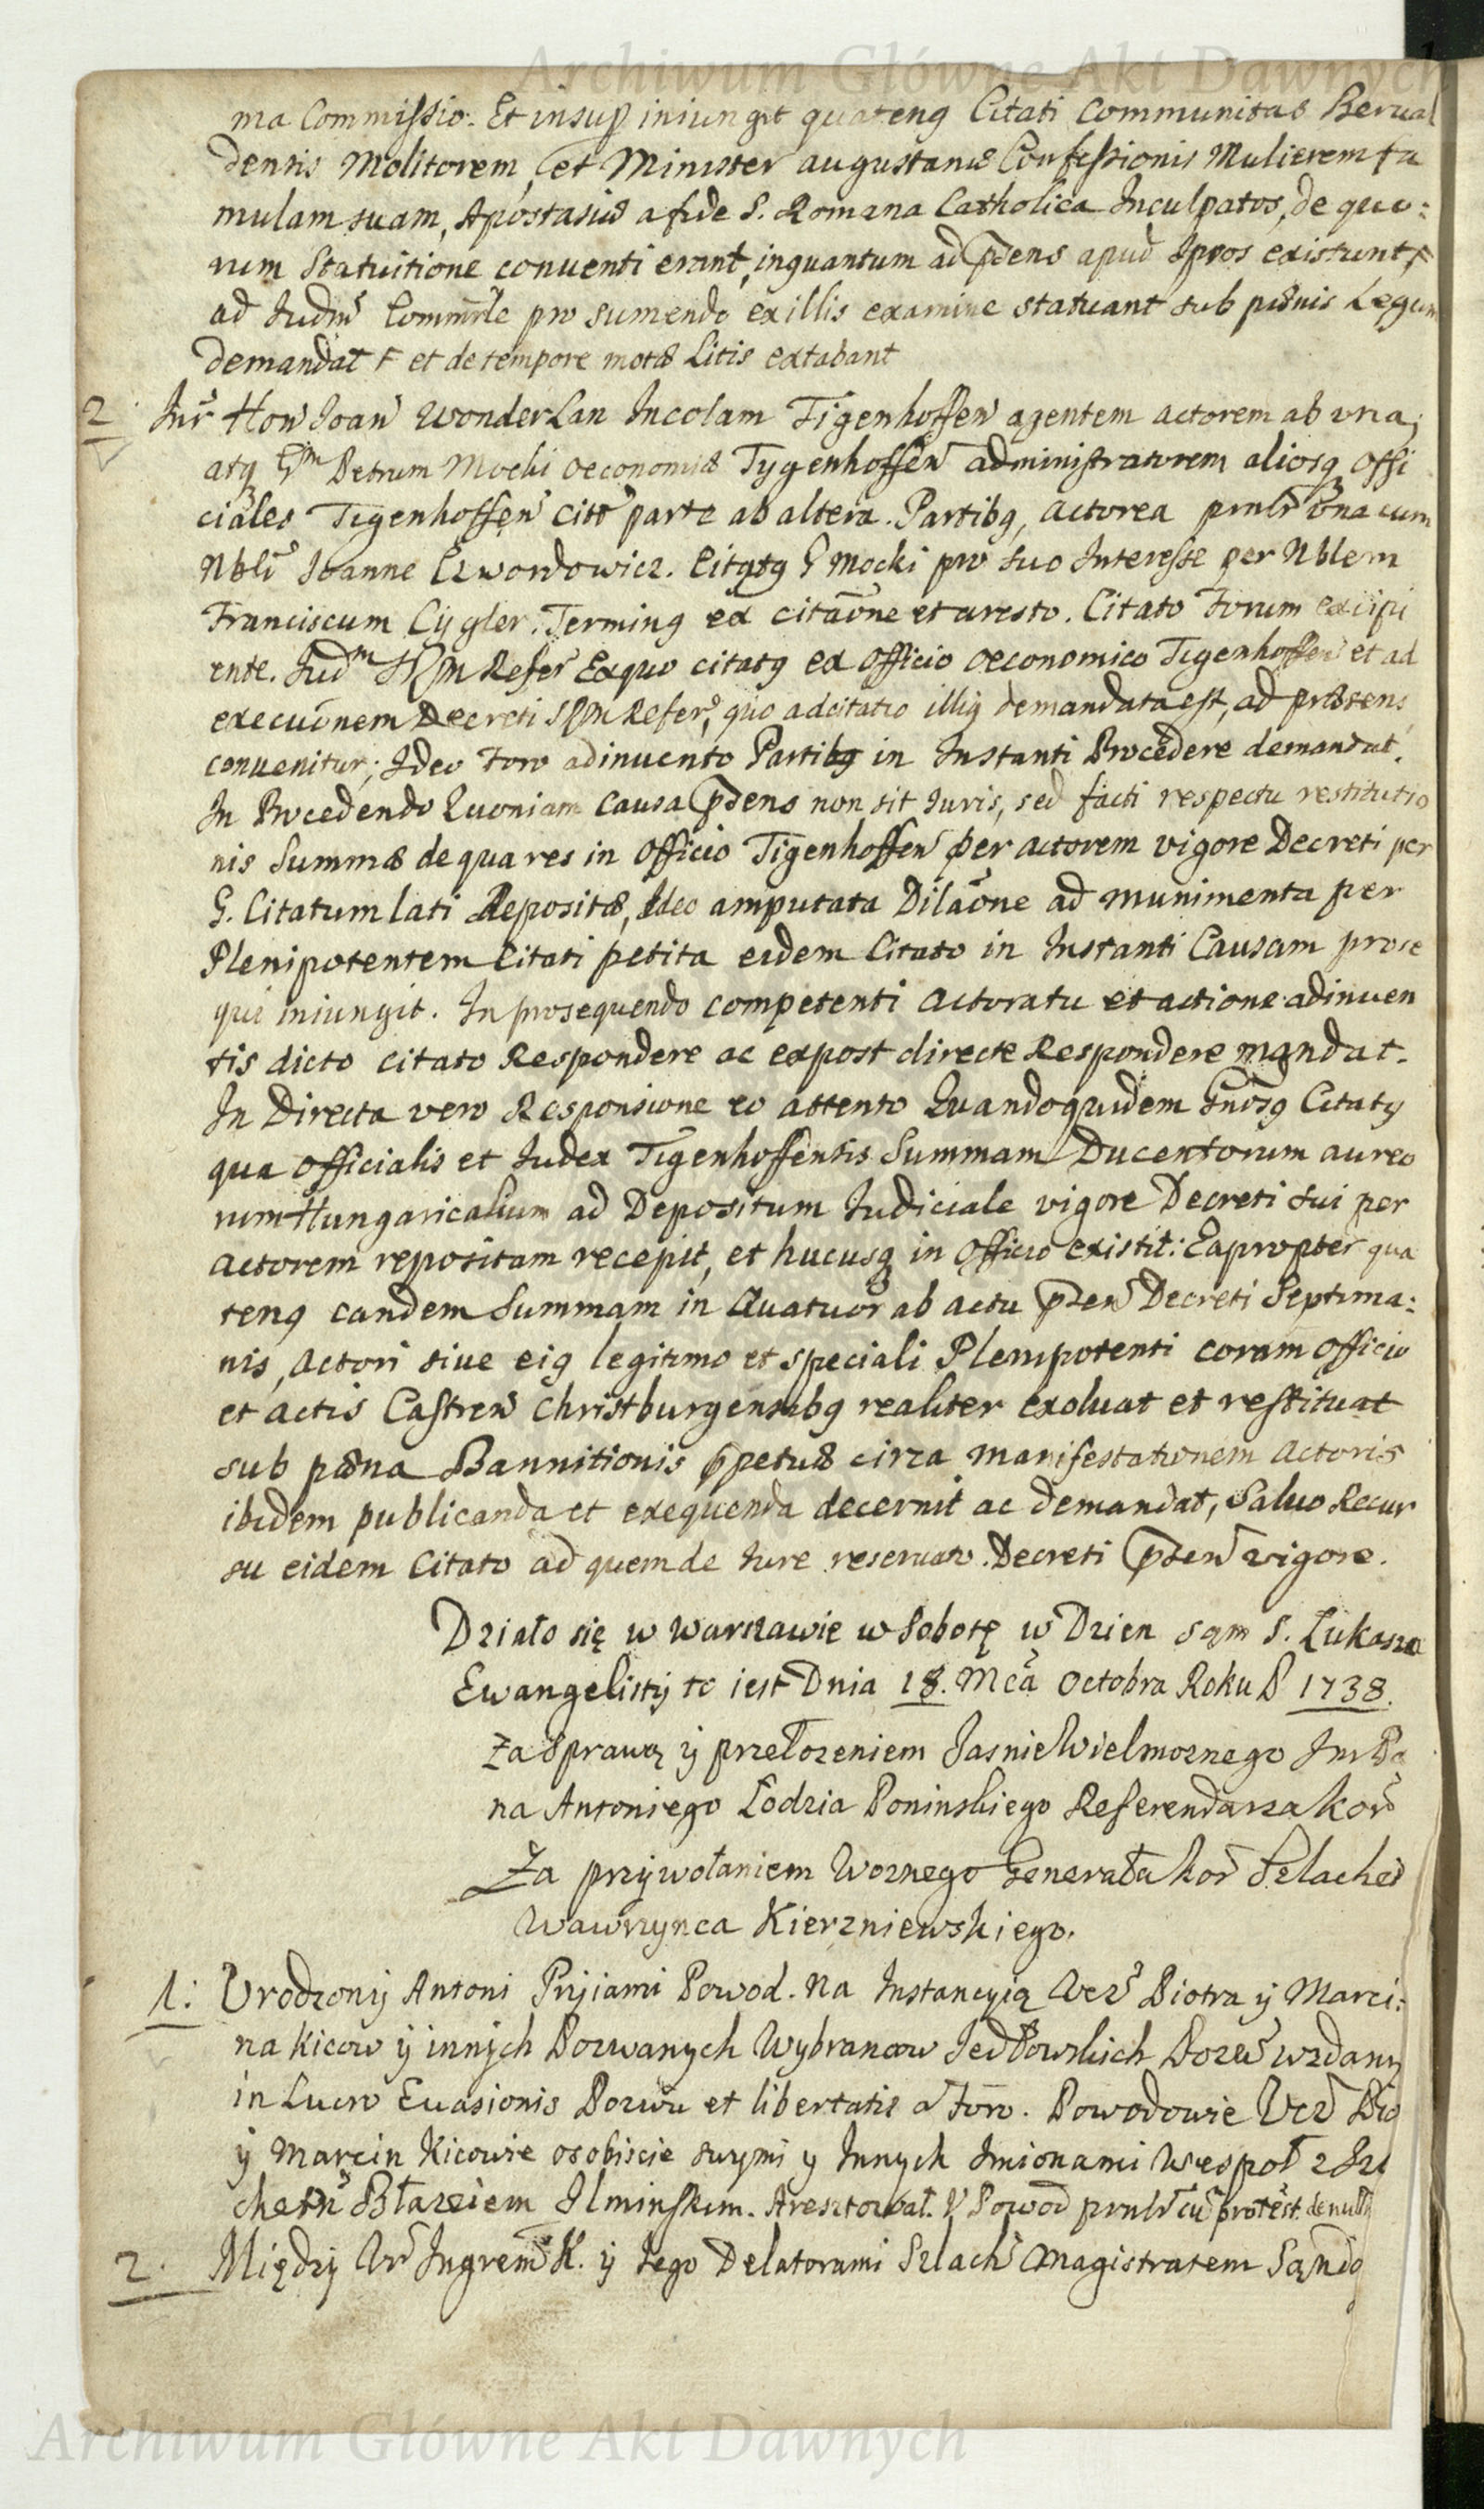 Archiwum Główne Akt Dawnych
ma Commissio. Et insup iniungit quatenq Citati Communitas Berual
densis Molitorem, et Minister augustanæ Confessionis Mulierem fa
mulam suam, Apostasiæ a fide S. Romana Catholica Inculpatos, de quo:
rum Statuitione conuenti erant, inquantum ad pñdens apud Ipsos existunt, F
ad Judm Commrle pro sumendo ex illis examine statuant sub pænis Legum
demandat F et de tempore motæ Litis extabant
2 Intr Hon Joan Wonderlan Incolam Tigenhoffen agentem actorem ab vna,
atq Gm Petrum Mocki oeconomiæ Tygenhoffen administratorem aliosq offi
ciales Tigenhoffen citt parte ab altera. Partibq, actorea pntlr vna cum
Nbli Joanne Czwordowicz. Citatq G Mocki pro suo Interesse per Nblem
Franciscum Cygler. Terminq ex citaone et aresto. Citato Forum excipi
ente. Judm SRM Refer Exquo citatq ex officio oeconomico Tigenhoffen et ad
executionem Decreti SRM Refer, quo adcitatio illiq demandata est, ad præsens
conuenitur; Ideo Foro adinuento Partibq in Instanti Procedere demandat.
In Procedendo Quoniam Causa pñdens non sit Juris, sed facti respectu restitutio
nis Summæ de qua res in officio Tigenhoffen per actorem vigore Decreti per
G. Citatum lati Repositæ, Ideo amputata Dilaone ad munimenta per
Plenipotentem Citati petita eidem Citato in Instanti Causam prose
qui iniungit. In prosequendo competenti actoratu et actione adinuen
tis dicto citato Respondere ac expost directe Respondere mandat.
In Directa vero Responsione eo attento Quandoquidem Gnosq Citatq
qua officialis et Judex Tigenhoffensis Summam Ducentorum aureo
rum Hungaricalium ad Depositum Judiciale vigore Decreti sui per
actorem repositam recepit, et hucusq in officio existit: Eapropter qua
tenq eandem Summam in Quatuor ab actu pñden Decreti Septima:
nis, actori siue eiq legitimo et speciali Plenipotenti coram officio
et actis Castren Christburgensibq realiter exoluat et restituat
sub pæna Bannitionis ppetuæ circa manifestationem actoris
ibidem publicanda et exequenda decernit ac demandat, Saluo Recur
su eidem Citato ad quem de Jure reseruato. Decreti pñden vigore.
Działo się w Warszawie w Sobotę w Dzien sąm S. Łukasza
Ewangelisty to iest Dnia 18. Mca Octobra Roku P 1738.
Za Sprawą y przełozeniem JasnieWielmoznego Jm Pa
na Antoniego Łodzia Poninskiego Referendarza Kor
Za przywołaniem Woznego Generała Kor Szlachet
Wawrzynca Kierzniewskiego.
1. Vrodzony Antoni Pryiami Powod. Na Instancyią Vcz Piotra y Marci:
na Kicow y innych Pozwanych Wybrancow Jedłowskich Pozew wzdany
in Lucro Euasionis Pozwu et libertatis a Foro. Powodowie Vcz Pio
y Marcin Kicowie osobiscie swymi y Innych Imionami Wespoł z Szl
chetn Błazeiem Ilminskim. Aresztował. V Powod pntlr cu protest. de null
2. Między Vr Ingrem K. y Jego Delatorami Szlach Magistratem Sąndo
Archiwum Główne Akt Dawnych